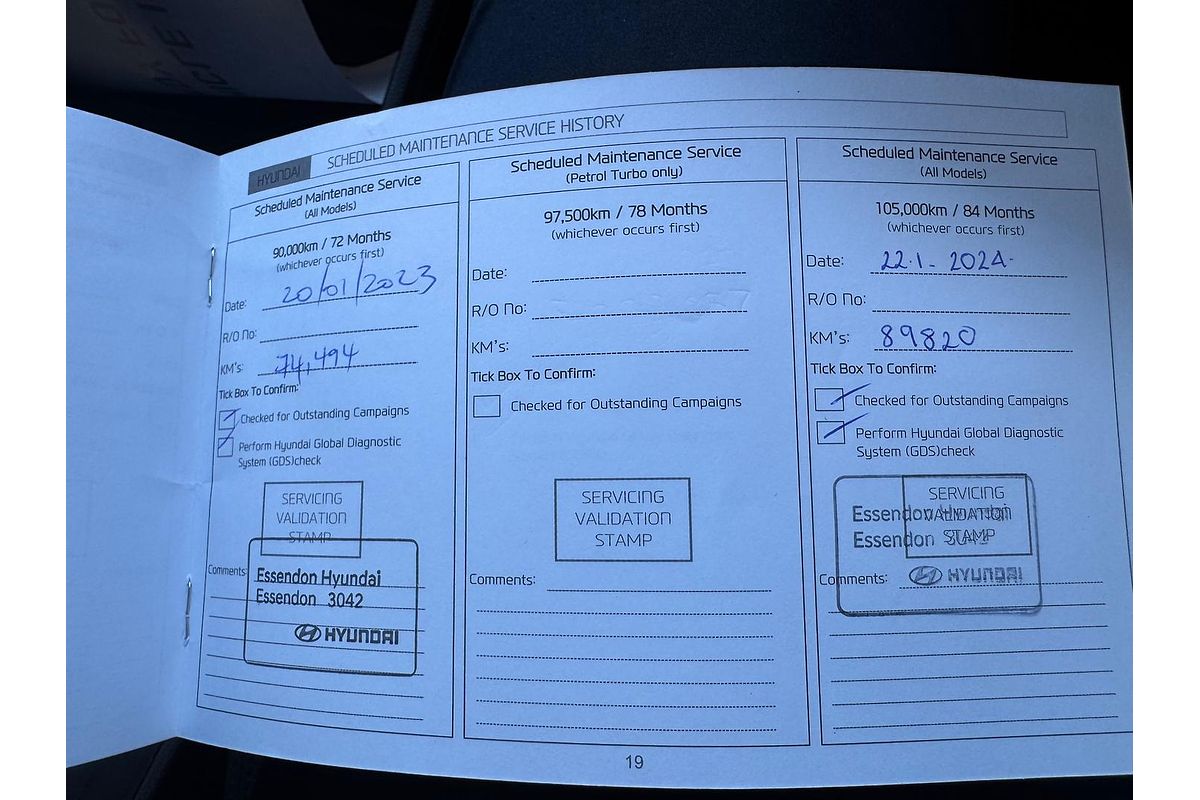 HYUNDAI SCHEDULED MAINTENANCE SERVICE HISTORY
Scheduled Maintenance Service
(All Models)
90,000km / 72 Months
(whichever occurs first)
Date: 20/01/2023
R/O No:
KM's: 74,494
Tick Box To Confirm:
Checked for Outstanding Campaigns
Perform Hyundai Global Diagnostic
System (GDS)check
SERVICING
VALIDATION
STAMP
Comments:
Essendon Hyundai
Essendon 3042
HYUNDAI
Scheduled Maintenance Service
(Petrol Turbo only)
97,500km / 78 Months
(whichever occurs first)
Date:
R/O No:
KM's:
Tick Box To Confirm:
Checked for Outstanding Campaigns
SERVICING
VALIDATION
STAMP
Comments:
Scheduled Maintenance Service
(All Models)
105,000km / 84 Months
(whichever occurs first)
Date: 22.1- 2024.
R/O No:
KM's: 89820
Tick Box To Confirm:
Checked for Outstanding Campaigns
Perform Hyundai Global Diagnostic
System (GDS)check
SERVICING
VALIDATION
STAMP
Essendon Hyundai
Essendon 3042
Comments:
HYUNDAI
19